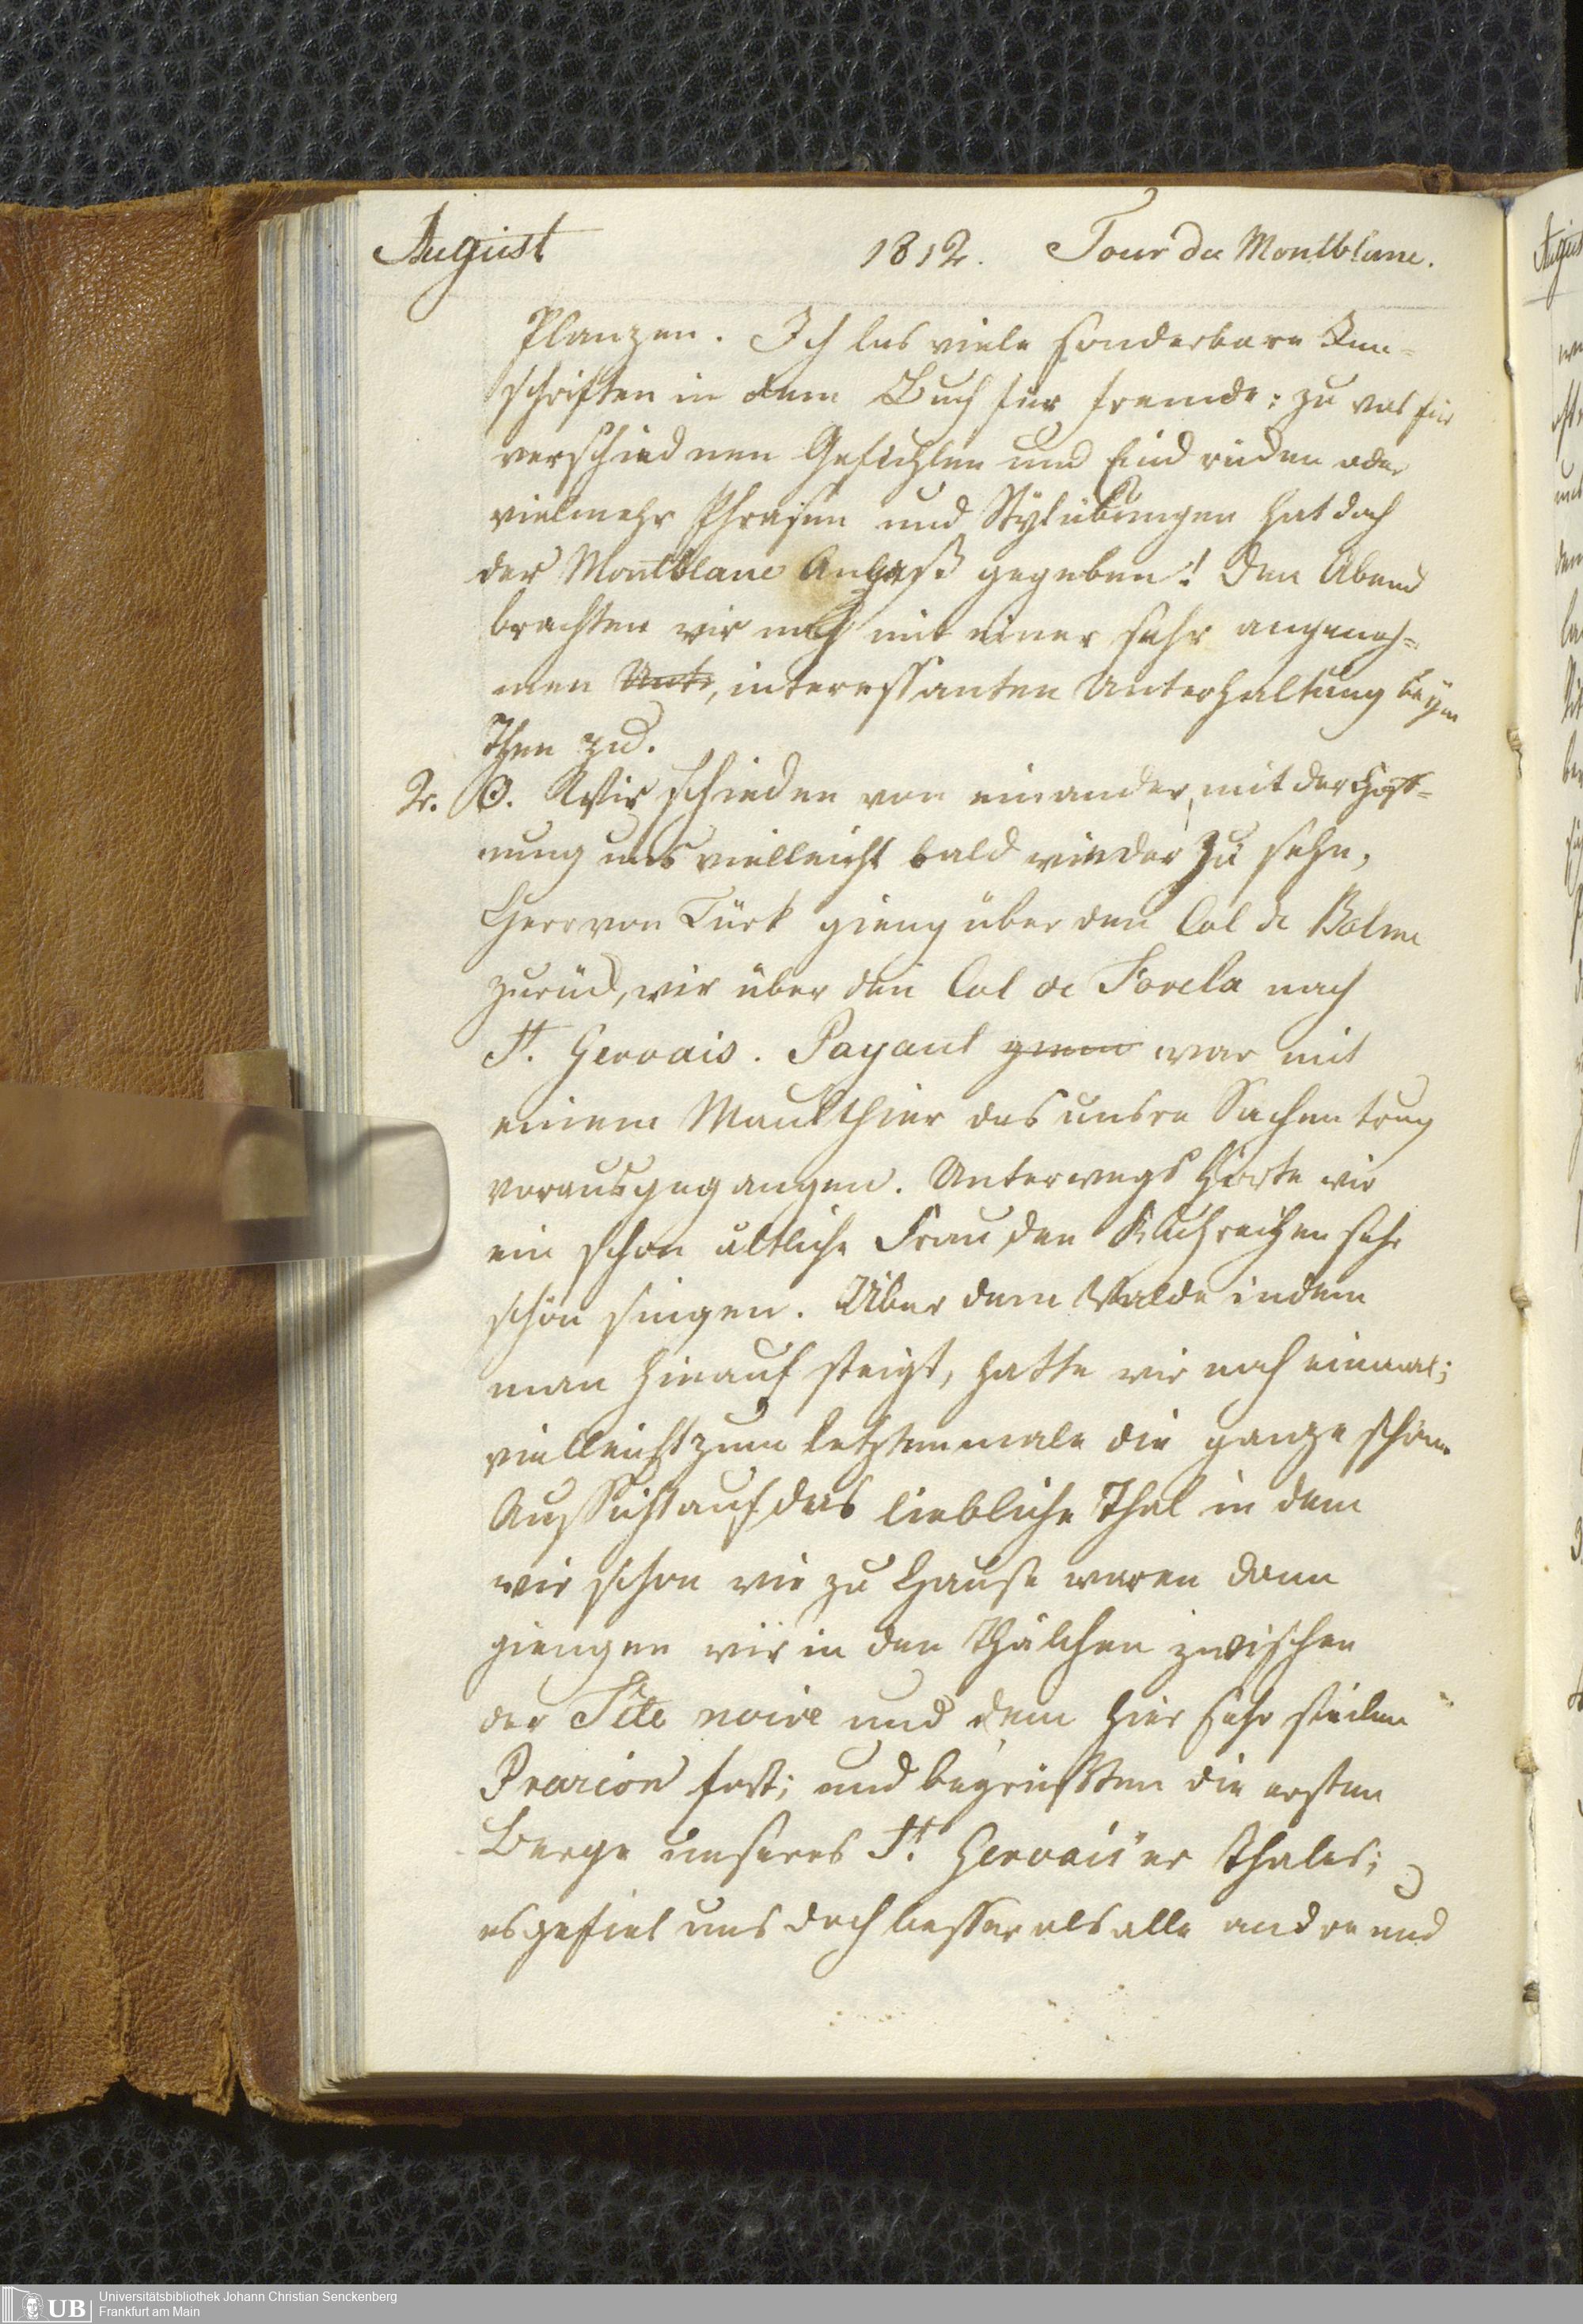 August 1812. Tour du Montblanc.
Planzen. Ich las viele sonderbare Inn=
schriften in dem Buch für fremde: zu was für
verschiednen Gefühlen und Eindrücken oder
vielmehr Phrasen und Stylübungen hat doch
der Montblanc Anlass gegeben! Den Abend
brachten wir noch mit einer sehr angeneh=
men Unte, interessanten Unterhaltung beÿm
Thee zu.
2. ☉. Wir schieden von einander, mit der Hoff=
nung uns vielleicht bald wieder zu sehn,
Herr von Türk gieng über den Col de Balme
zurück, wir über den Col de Forcla nach
St. Gervais. Payant war mit
einem Maulthier das unsre Sachen trug
vorausgegangen. Unterwegs hörte wir
ein schon ältliche Frau den Kuhreihen sehr
schön singen. Über dem Walde indem
man hinauf steigt, hatte wir noch einmal;
vielleicht zum letztenmale die ganze schöne
Aussicht auf das liebliche Thal in dem
wir schon wie zu Hause waren dann
giengen wir in den Thälchen zwischen
der Tête noire und dem hier sehr steilen
Prarion fort; und begrüssten die ersten
Berge unseres St. Gervais'er Thales;
es gefiel uns doch besser als alle andre und
Universitätsbibliothek Johann Christian Senckenberg
UB Frankfurt am Main